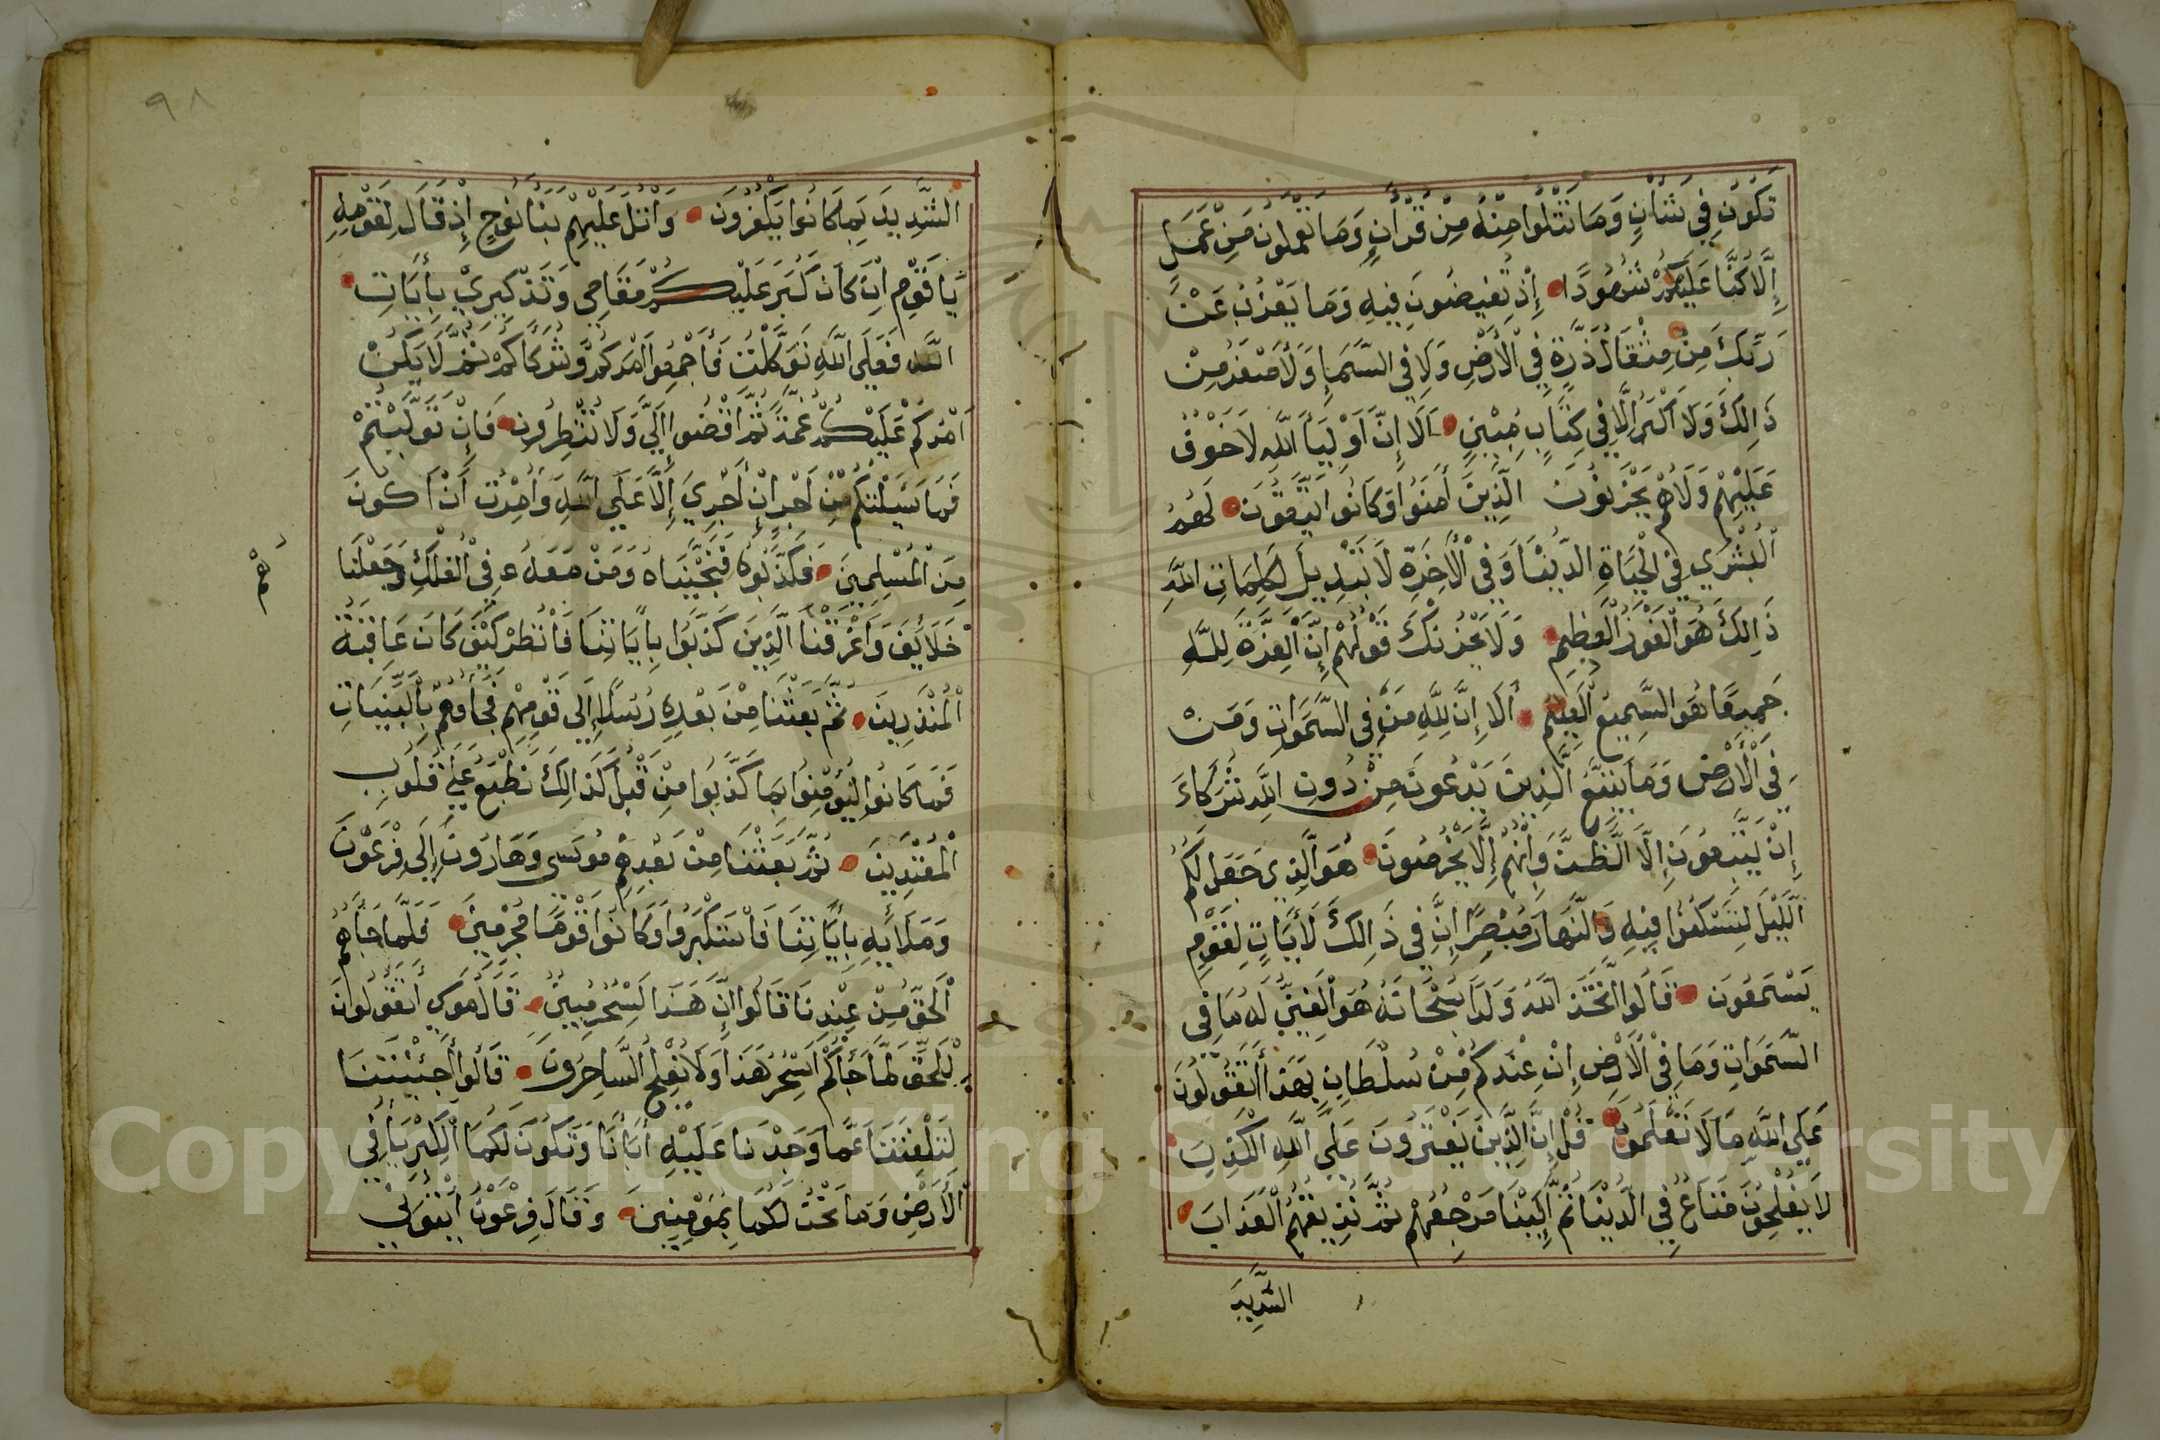 تَكُونُ فِي شَأْنٍ وَمَا تَتْلُوا مِنْهُ مِنْ قُرْأٰنٍ وَمَا تَعْمَلُونَ مِنْ عَمَلٍ
إِلَّا كُنَّا عَلَيْكُمْ شُهُودًا إِذْ تُفِيضُونَ فِيهِ وَمَا يَعْزُبُ عَنْ
رَبِّكَ مِنْ مِثْقَالِ ذَرَّةٍ فِي الْأَرْضِ وَلَا فِي السَّمَاءِ وَلَا أَصْغَرَ مِنْ
ذَالِكَ وَلَا أَكْبَرَ إِلَّا فِي كِتَابٍ مُبِينٍ أَلَا إِنَّ أَوْلِيَاءَ اللَّهِ لَا خَوْفٌ
عَلَيْهِمْ وَلَا هُمْ يَحْزَنُونَ الَّذِينَ أَمَنُوا وَكَانُوا يَتَّقُونَ لَهُمُ
الْبُشْرَي فِي الْحَيَاةِ الدُّنْيَا وَفِي الْأَخِرَةِ لَا تَبْدِيلَ لِكَلِمَاتِ اللَّهِ
ذَالِكَ هُوَ الْفَوْزُ الْعَظِيمُ وَلَا يَحْزُنْكَ قَوْلُهُمْ إِنَّ الْعِزَّةَ لِلَّهِ
جَمِيعًا هُوَ السَّمِيعُ الْعَلِيمُ أَلَا إِنَّ لِلَّهِ مَنْ فِي السَّمَوَاتِ وَمَنْ
فِي الْأَرْضِ وَمَا يَتَّبِعُ الَّذِينَ يَدْعُونَ مِنْ دُونِ اللَّهِ شُرَكَاءَ
إِنْ يَتَّبِعُونَ إِلَّا الظَّنَّ وَإِنْ هُمْ إِلَّا يَخْرُصُونَ هُوَ الَّذِي جَعَلَ لَكُمُ
الَّيْلَ لِتَسْكُنُوا فِيهِ وَالنَّهَارَ مُبْصِرًا إِنَّ فِي ذَالِكَ لَأَيَاتٍ لِقَوْمٍ
يَسْمَعُونَ قَالُوا اتَّخَذَ اللَّهُ وَلَدًا سُبْحَانَهُ هُوَ الْغَنِيُّ لَهُ مَا فِي
السَّمَوَاتِ وَمَا فِي الْأَرْضِ إِنْ عِنْدَكُمْ مِنْ سُلْطَانٍ بِهَذَا أَتَقُولُونَ
عَلَي اللَّهِ مَا لَا تَعْلَمُونَ قُلْ إِنَّ الَّذِينَ يَفْتَرُونَ عَلَي اللَّهِ الْكَذِبَ
لَا يُفْلِحُونَ مَتَاعٌ فِي الدُّنْيَا ثُمَّ إِلَيْنَا مَرْجِعُهُمْ ثُمَّ نُذِيقُهُمُ الْعَذَابَ
الشَّدِيدَ
٩٨
الشَّدِيدَ بِمَا كَانُوا يَكْفُرُونَ وَاتْلُ عَلَيْهِمْ نَبَأَ نُوحٍ إِذْ قَالَ لِقَوْمِهِ
يَا قَوْمِ إِنْ كَانَ كَبُرَ عَلَيْكُمْ مَقَامِي وَتَذْكِيرِي بِأَيَاتِ
اللَّهِ فَعَلَي اللَّهِ تَوَكَّلْتُ فَأَجْمِعُوا أَمْرَكُمْ وَشُرَكَاءَكُمْ ثُمَّ لَا يَكُنْ
أَمْرُكُمْ عَلَيْكُمْ غُمَّةً ثُمَّ اقْضُوا إِلَيَّ وَلَا تُنْظِرُونِ فَإِنْ تَوَلَّيْتُمْ
فَمَا سَئَلْتُكُمْ مِنْ أَجْرٍ إِنْ أَجْرِيَ إِلَّا عَلَي اللَّهِ وَأُمِرْتُ أَنْ أَكُونَ
مِنَ الْمُسْلِمِينَ فَكَذَّبُوهُ فَنَجَّيْنَاهُ وَمَنْ مَعَهُ فِي الْفُلْكِ وَجَعَلْنَا
هُمْ
خَلَائِفَ وَأَغْرَقْنَا الَّذِينَ كَذَّبُوا بِأَيَاتِنَا فَانْظُرْ كَيْفَ كَانَ عَاقِبَةُ
الْمُنْذَرِينَ ثُمَّ بَعَثْنَا مِنْ بَعْدِهِ رُسُلًا إِلَي قَوْمِهِمْ فَجَاؤُهُمْ بِالْبَيِّنَاتِ
فَمَا كَانُوا لِيُؤْمِنُوا بِمَا كَذَّبُوا مِنْ قَبْلُ كَذَالِكَ نَطْبَعُ عَلَي قُلُوبِ
الْمُعْتَدِينَ ثُمَّ بَعَثْنَا مِنْ بَعْدِهِمْ مُوسَي وَهَارُونَ إِلَي فِرْعَوْنَ
وَمَلَائِهِ بِأَيَاتِنَا فَاسْتَكْبَرُوا وَكَانُوا قَوْمًا مُجْرِمِينَ فَلَمَّا جَاءَهُمُ
الْحَقُّ مِنْ عِنْدِنَا قَالُوا إِنَّ هَذَا لَسِحْرٌ مُبِينٌ قَالَ مُوسَي أَتَقُولُونَ
لِلْحَقِّ لَمَّا جَاءَكُمْ أَسِحْرٌ هَذَا وَلَا يُفْلِحُ السَّاحِرُونَ قَالُوا أَجِئْتَنَا
لِتَلْفِتَنَا عَمَّا وَجَدْنَا عَلَيْهِ أَبَاءَنَا وَتَكُونَ لَكُمَا الْكِبْرِيَاءُ فِي
الْأَرْضِ وَمَا نَحْنُ لَكُمَا بِمُؤْمِنِينَ وَقَالَ فِرْعَوْنُ ائْتُونِي
Copyright © King Saud University